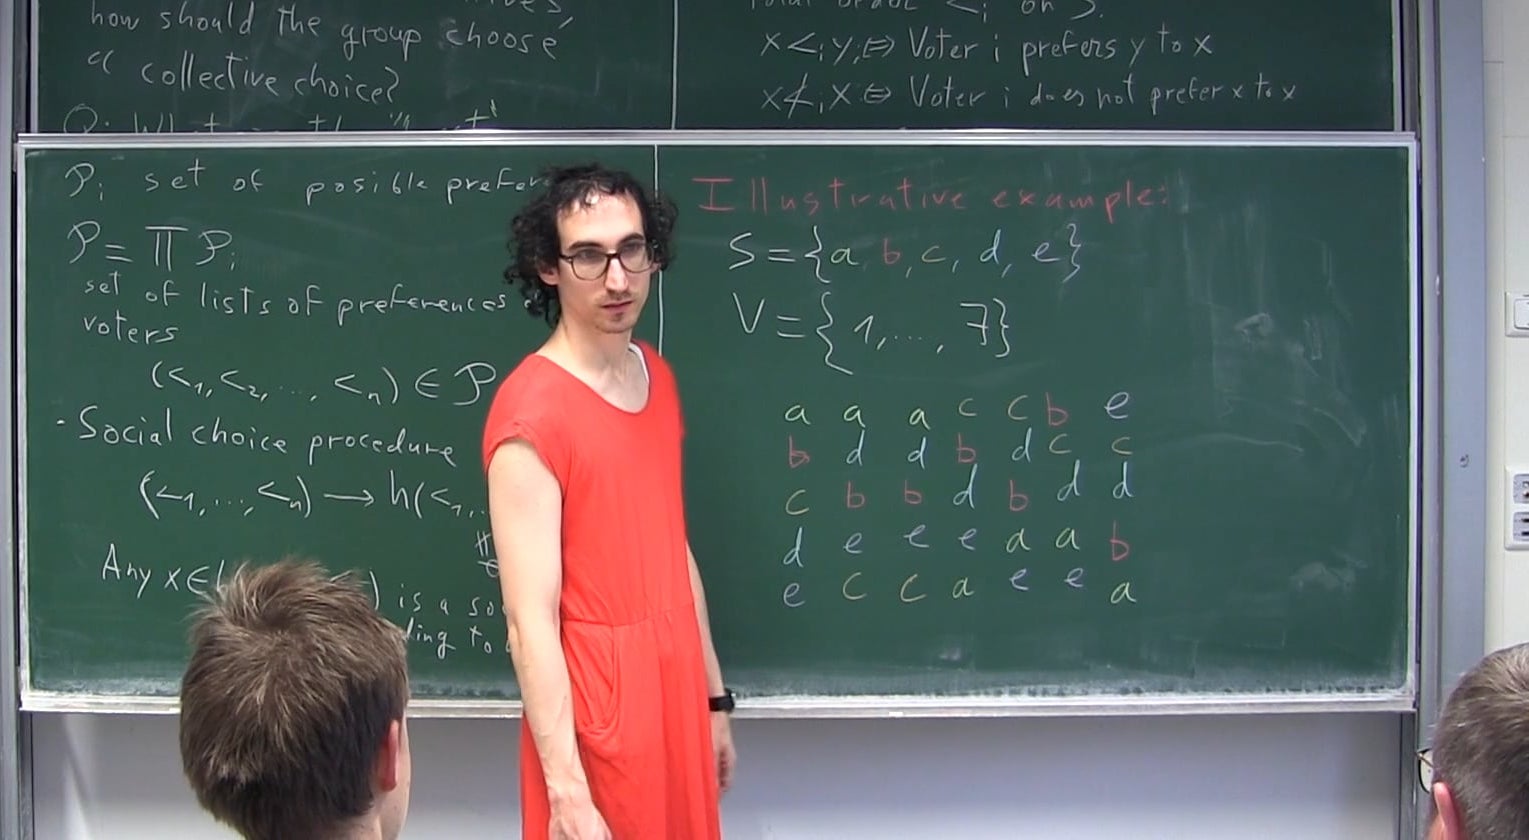 how should the group choose
a collective choice?
Q: What
x <ᵢ y :⇔ Voter i prefers y to x
x ≮ᵢ x ⇔ Voter i does not prefer x to x
𝒫ᵢ set of posible prefer
𝒫 = ∏ 𝒫ᵢ
set of lists of preferences
voters
(<₁, <₂, ..., <ₙ) ∈ 𝒫
· Social choice procedure
(<₁, ..., <ₙ) → h(<₁, ..
Any x ∈ ) is a so
ding to
Illustrative example:
S = {a, b, c, d, e}
V = {1, ..., 7}
a a a c c b e
b d d b d c c
c b b d b d d
d e e e a a b
e c c a e e a